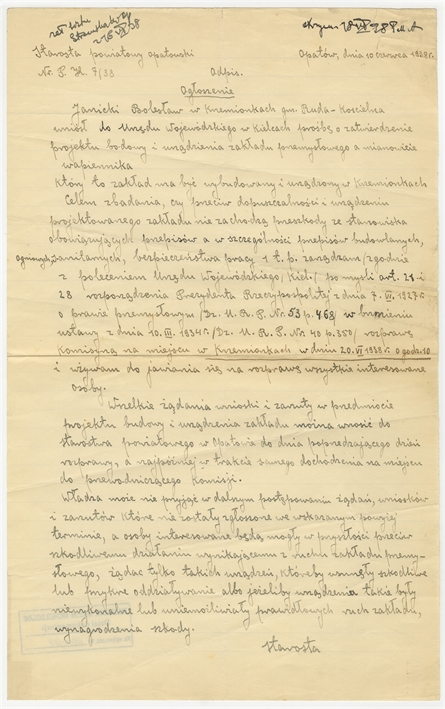 Starosta powiatowy opatowski
Opatów, dnia 10 czerwca 1938 r.
Nr. P. H. 9/33
Odpis.
Ogłoszenie
Janicki Bolesław w Krzemionkach gm. Ruda-Kościelna
wniósł do Urzędu Wojewódzkiego w Kielcach prośbę o zatwierdzenie
projektu budowy i urządzenia zakładu przemysłowego a mianowicie
wapiennika
który to zakład ma być wybudowany i urządzony w Krzemionkach
Celem zbadania, czy przeciw dopuszczalności i urządzeniu
projektowanego zakładu nie zachodzą przeszkody ze stanowiska
obowiązujących przepisów a w szczególności przepisów budowlanych,
ogniowych, sanitarnych, bezpieczeństwa pracy i t. p. zarządzam /zgodnie
z poleceniem Urzędu Wojewódzkiego /Kiel./ po myśli art. 21 i
28 rozporządzenia Prezydenta Rzeczypospolitej z dnia 7. VI. 1927 r.
o prawie przemysłowym /Dz. U. R. P. Nr. 53 p. 468 w brzmieniu
ustawy z dnia 10. III. 1934 r. /Dz. U. R. P. Nr. 40 p. 350/ rozprawę
komisyjną na miejscu w Krzemionkach w dniu 20. VI 1938 r. o godz. 10
i wzywam do jawiania się na rozprawę wszystkie interesowane
osoby.
Wszelkie żądania wnioski i zarzuty w przedmiocie
projektu budowy i urządzenia zakładu można wnosić do
starostwa powiatowego w Opatowie do dnia poprzedzającego dzień
rozprawy, a najpóźniej w trakcie samego dochodzenia na miejscu
do przewodniczącego Komisji.
Władza może nie przyjąć w dalszym postępowaniu żądań, wniosków
i zarzutów które nie zostały zgłoszone we wskazanym powyżej
terminie, a osoby interesowane będą mogły w przyszłości przeciw
szkodliwemu działaniu wynikającemu z ruchu zakładu przemy-
słowego, żądać tylko takich urządzeń, któreby usunęły szkodliwe
lub przykre oddziaływanie albo jeżeliby urządzenia takie były
niewykonalne lub uniemożliwiały prawidłowych ruch zakładu,
wynagrodzenia szkody.
Starosta